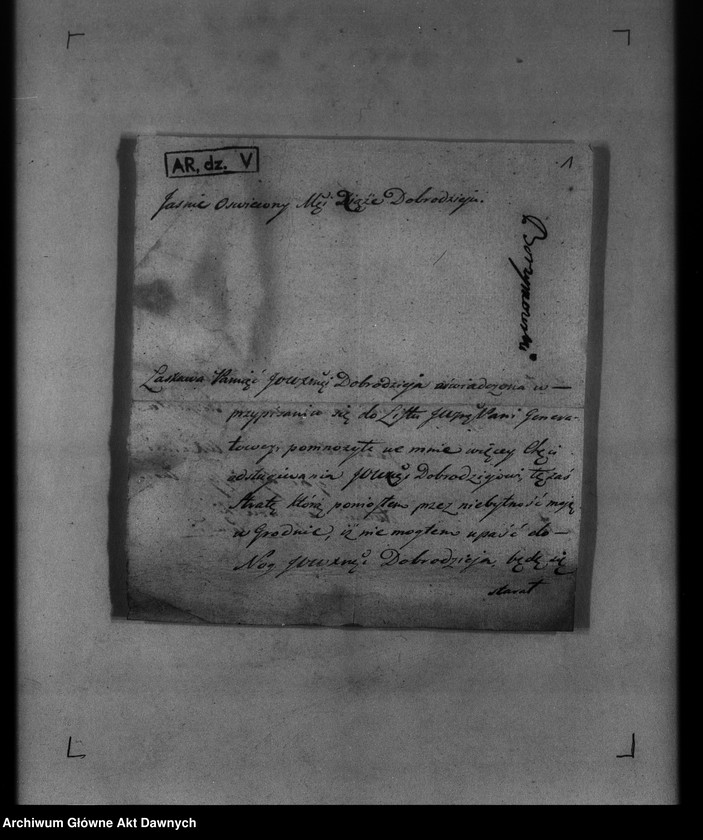 AR, dz. V
1
Jasnie Oswiecony Mći Xiąże Dobrodzieju.
Łaskawa Pamięć JOWXMći Dobrodzieja oświadczona w
przypisaniu się do Listu JWJPs Pani Genera-
łowey, pomnożyła we mnie więcey Chęci
odsługiwania JOWXMći Dobrodziejowi, tę zaś
Stratę którą poniosłem przez niebytność moję
w Grodnie, iż nie mogłem upaść do
Nog JOWXMći Dobrodzieja, będę się
starał
Archiwum Główne Akt Dawnych